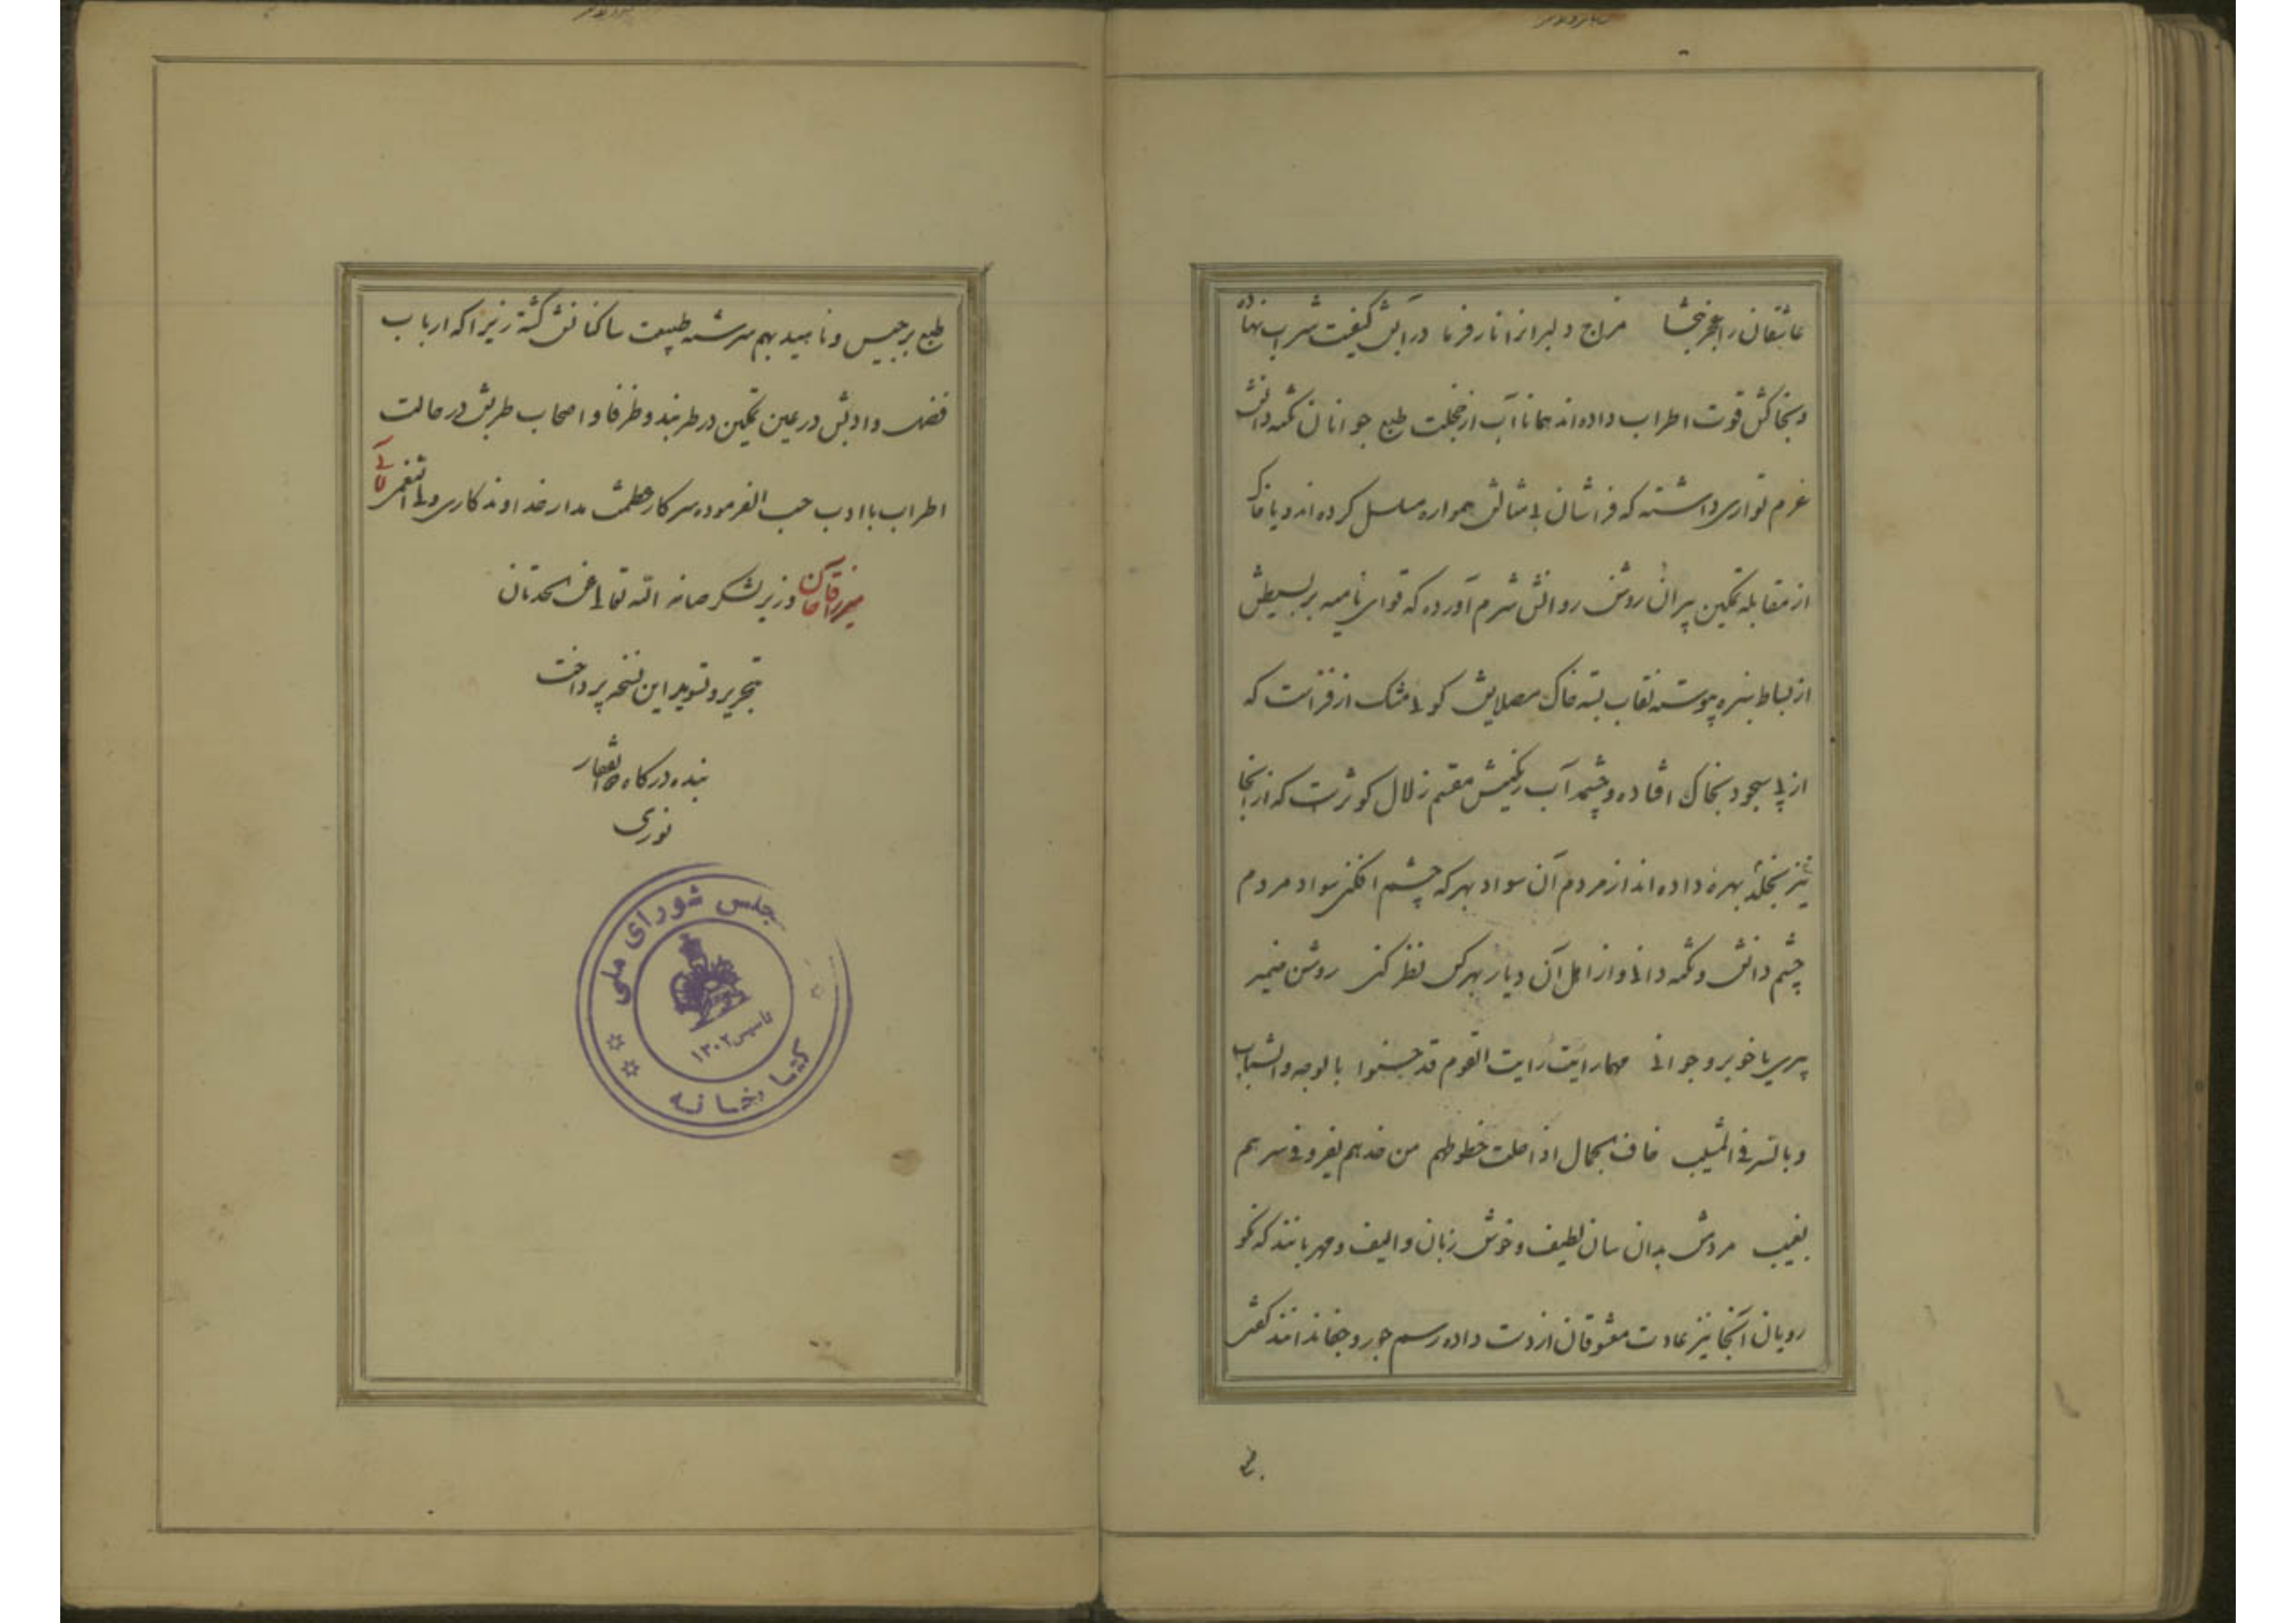 عاشقان را عجز بخشا مزاج دلبر انرا نار فرما در آبش کیفیت شراب نهاده
و بخاکش قوت اطراب داده‌اند همانا آب از خجلت طبع جوانان نکته دانش
عزم تواری داشته که فراشان بی مثالش همواره مسلسل کرده‌اند و یا خاک
از مقابله تمکین پیران روشن روانش شرم آورده که قوای نامیه بر بسیطش
از بساط سبزه پیوسته نقاب بسته خاک مصلایش کوی مشک از فزاست که
از پی سجود بخاک افتاده و چشمه آب رکنیش مقسم زلال کوثرست که از آنجا
نیز بخلد بهره داده‌اند از مردم آن سواد بهر که چشم افکنی سواد مردم
چشم دانش و نکته دانی و از اهل آن دیار بهر کس نظر کنی روشن ضمیر
پیری یا خوبرو جوانی مهما رایت رایت القوم قد حسنوا بالوجه والشباب
و بالسر فی المشیب خاف الجمال اذا خطوطهم من خدهم یفر و فی سرهم
بغیب مردمش بدان سان لطیف و خوش زبان و الیف و مهربانند که نکو
رویان آنجا نیز عادت معشوقان از دست داده رسم جور و جفا ندانند گفتی
طبع برجیس و ناهید بهم سرشته طبیعت ساکنانش گشته زیرا که ارباب
فضل و ادبش در عین تمکین در طربند و ظرفا و اصحاب طربش در حالت
اطراب با ادب حسب الفرموده سرکار عظمت مدار خداوندکاری ولی النعمی آقائی
میرزا آقا خان وزیر لشکر صانه الله تعالی عن الحدثان
بتحریر و تسوید این نسخه پرداخت
بنده درگاه
نوری
مجلس شورای ملی
تاسیس ۱۳۰۲
کتابخانه